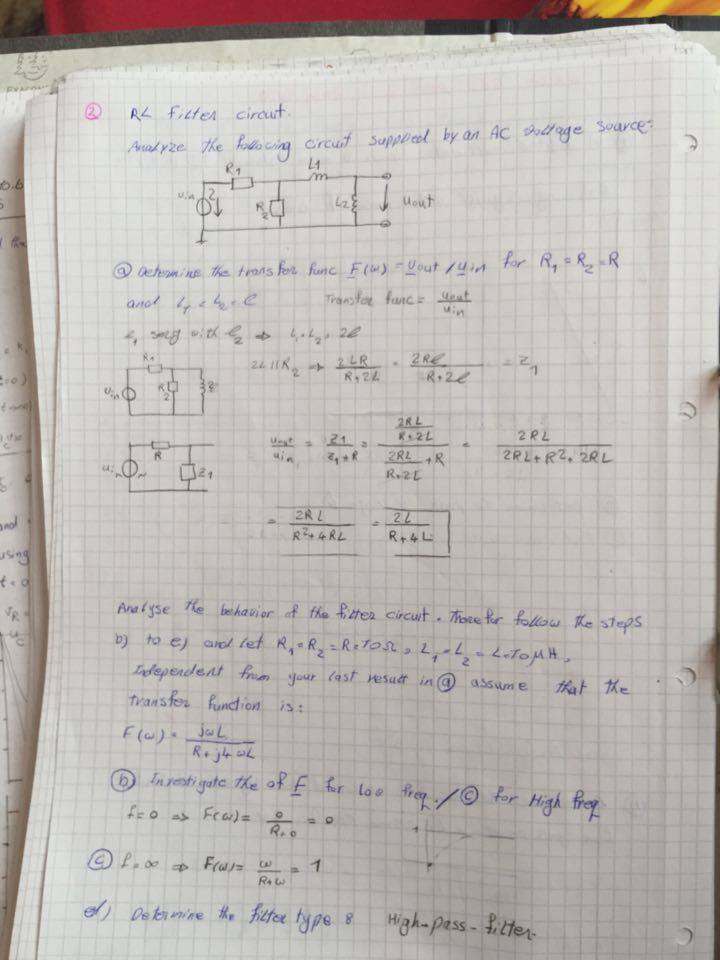 ②
RL Filter circuit.
Analyze the following circuit supplied by an AC voltage source:
R1
L1
Uin
R2
L2
Uout
ⓐ Determine the transfer func F(ω) = Uout / Uin for R1 = R2 = R
and L1 = L2 = l Transfer func = Uout / Uin
with l2 ⇒ L1 + L2 = 2l
R1
Uin
R2
2L || R2 ⇒ 2LR / R+2L = 2Rl / R+2l = Z1
Uin
R
Z1
Uout / Uin = Z1 / Z1+R = (2RL / R+2L) / (2RL / R+2L + R) = 2RL / 2RL+R²+2RL
= 2RL / R²+4RL = 2L / R+4L
Analyse the behavior of the filter circuit. Therefor follow the steps
b) to e) and let R1 = R2 = R = 10Ω, L1 = L2 = L = 10μH,
Independent from your last result in ⓐ assume that the
transfer function is:
F(ω) = jωL / R+j4ωL
ⓑ Investigate the of F for low freq. / ⓒ for High freq
f=0 ⇒ F(ω) = 0 / R+0 = 0
1
ⓒ f=∞ ⇒ F(ω) = ω / R+ω = 1
d) Determine the filter type : High-pass-filter.